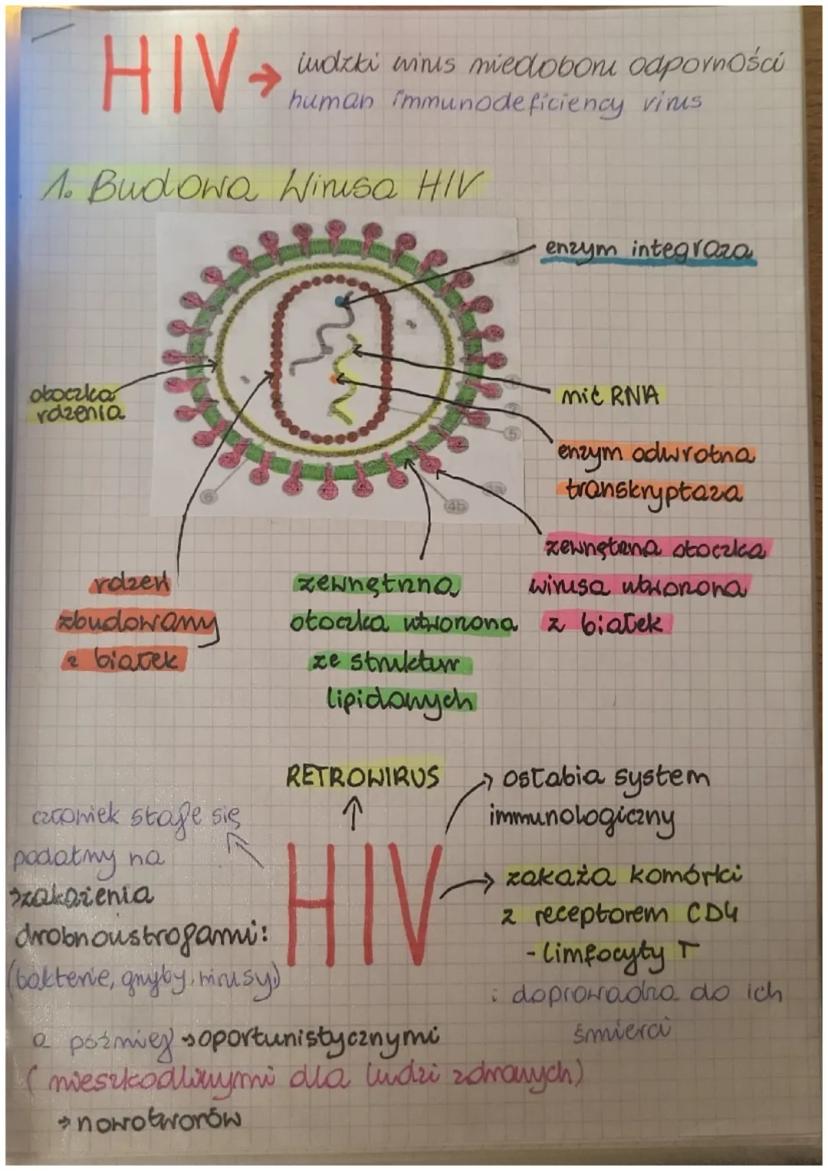 HIV → ludzki wirus niedoboru odporności
human immunodeficiency virus
1. Budowa Wirusa HIV
enzym integraza
otoczka
rdzenia
nić RNA
5
enzym odwrotna
transkryptaza
6
4b
zewnętrzna otoczka
wirusa utworzona
z białek
rdzeń
zbudowany
z białek
zewnętrzna
otoczka utworzona
ze struktur
lipidowych
RETROWIRUS
osłabia system
immunologiczny
człowiek staje się
podatny na
→zakażenia
drobnoustrojami:
(bakterie, grzyby, wirusy)
HIV
zakaża komórki
z receptorem CD4
- limfocyty T
i doprowadza do ich
śmierci
a później →oportunistycznymi
(nieszkodliwymi dla ludzi zdrowych)
→nowotworów